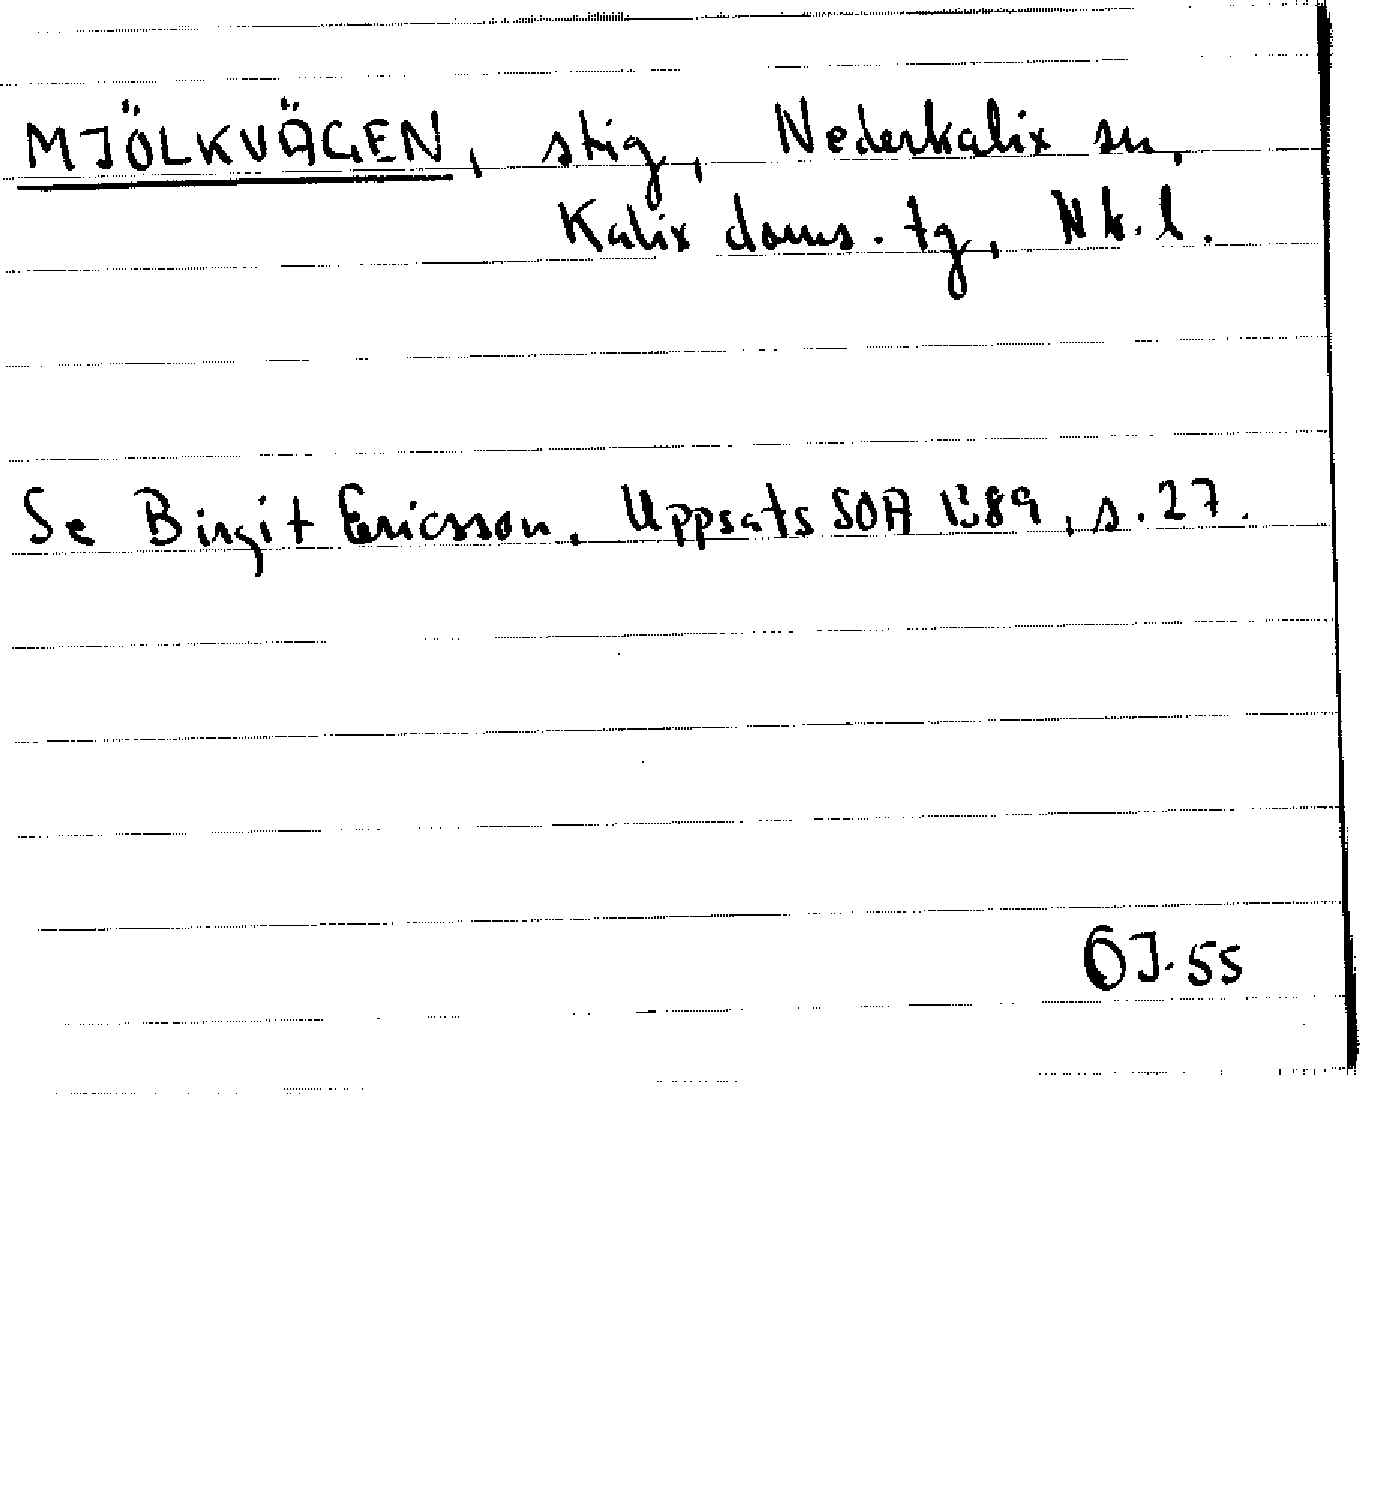 MJÖLKVÄGEN, stig, Nederkalix sn,
Kalix doms. tg, Nb. l.
Se Birgit Ericsson. Uppsats SOA 1389, s. 27.
ÖJ-55